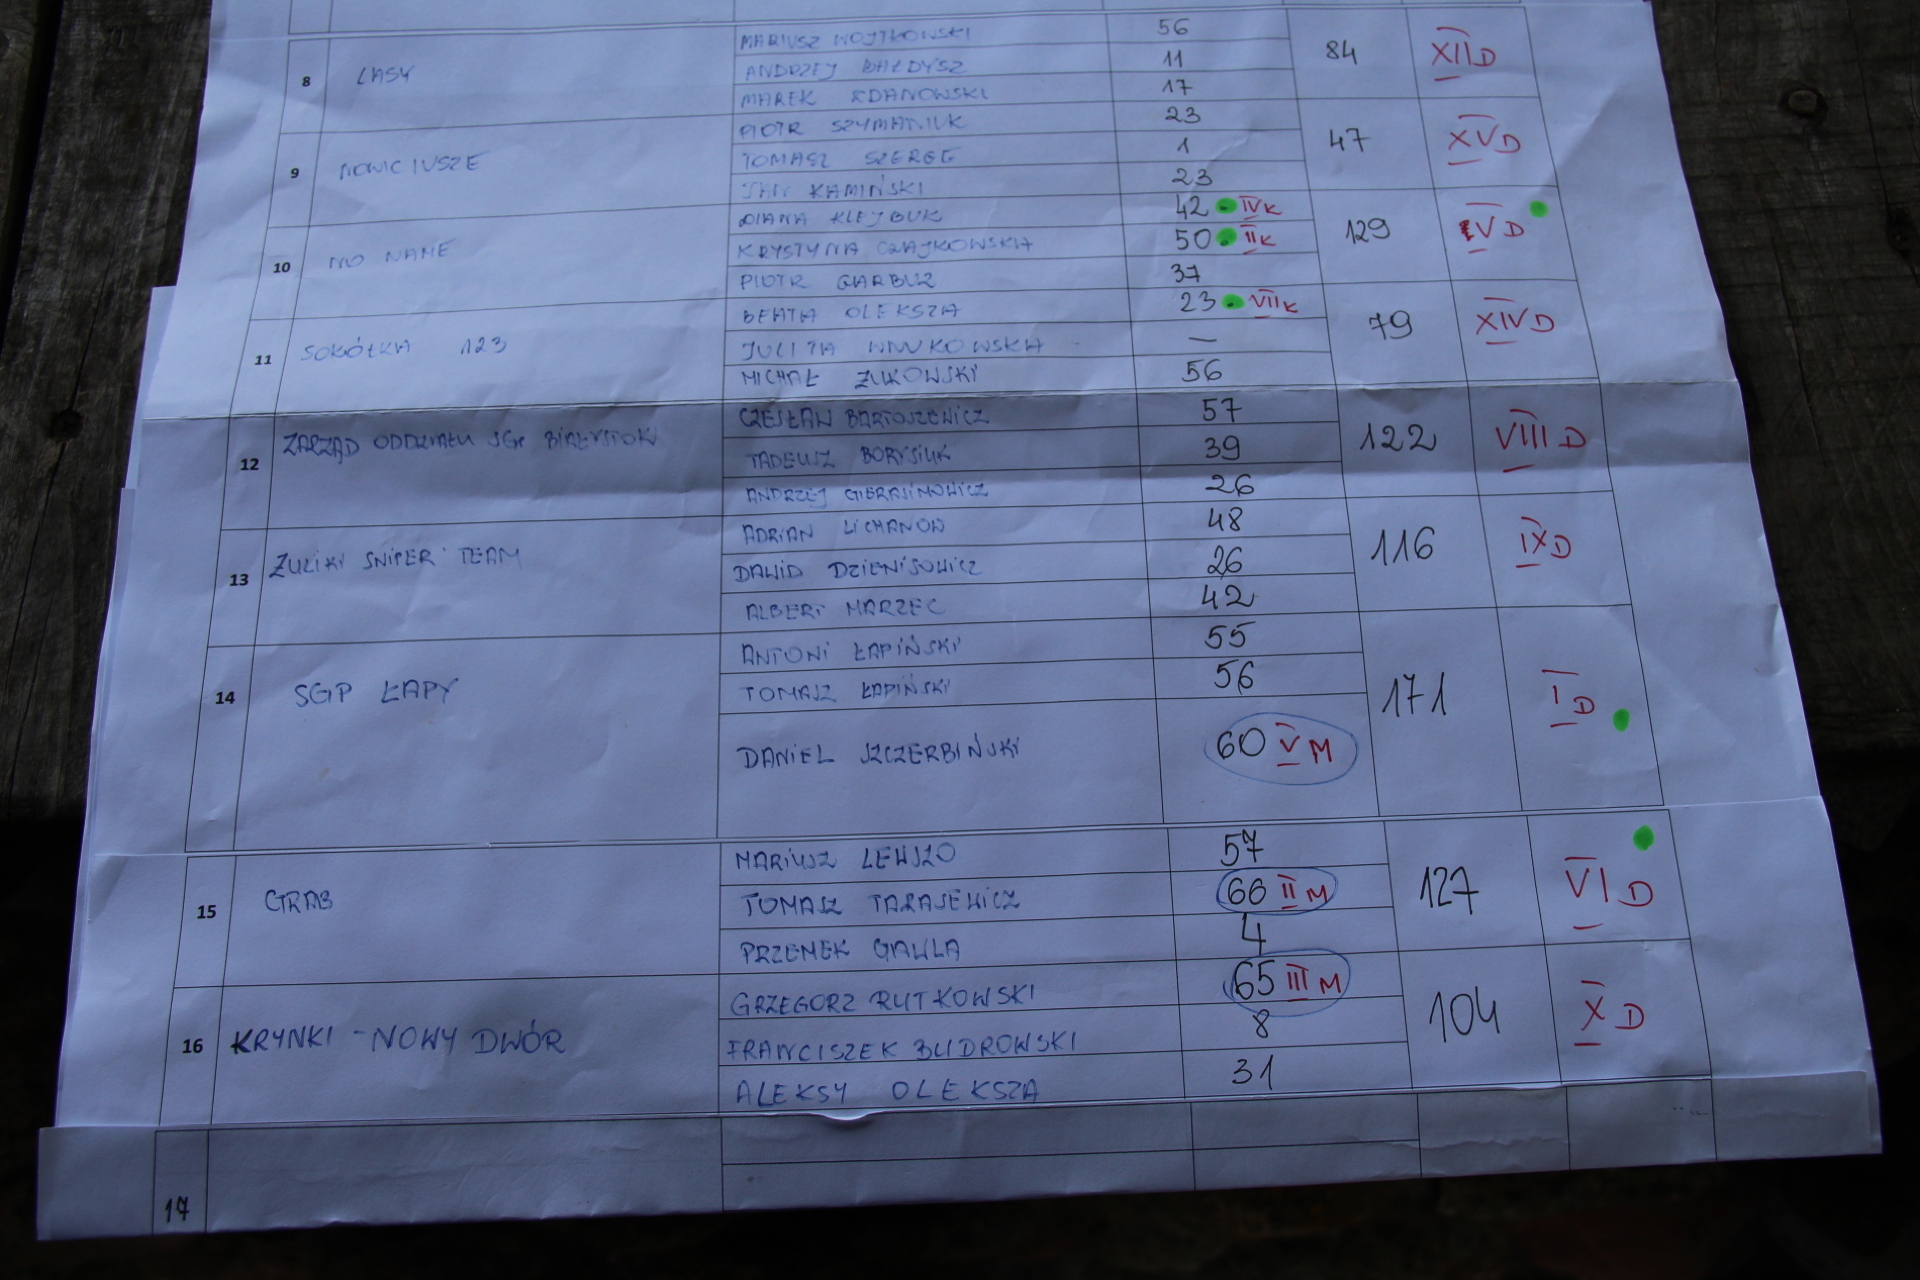 8 LASY MARIUSZ WOJTKOWSKI 56 84 XII D
ANDRZEJ BAŁDYSZ 11
MAREK ZDANOWSKI 17
9 NOWICIUSZE PIOTR SZYMANIUK 23 47 XV D
TOMASZ SZERGE 1
JAN KAMIŃSKI 23
10 NO NAME DIANA KLEJBUK 42 IV K 129 V D
KRYSTYNA CZAJKOWSKA 50 II K
PIOTR GARBUZ 37
11 SOKÓŁKA 123 BEATA OLEKSZA 23 VII K 79 XIV D
JULITA WNUKOWSKA —
MICHAŁ ŻUKOWSKI 56
12 ZARZĄD ODDZIAŁU SGP BIAŁYSTOK CZESŁAW BARTOSZEWICZ 57 122 VIII D
TADEUSZ BORYSIUK 39
ANDRZEJ GIERASIMOWICZ 26
13 ZULIKI SNIPER TEAM ADRIAN LICHANOW 48 116 IX D
DAWID DZIENISOWICZ 26
ALBERT MARZEC 42
14 SGP ŁAPY ANTONI ŁAPIŃSKI 55 171 I D
TOMASZ ŁAPIŃSKI 56
DANIEL SZCZERBIŃSKI 60 V M
15 GRAB MARIUSZ LEWSZO 57 127 VI D
TOMASZ TARASEWICZ 66 II M
PRZEMEK GAWLA 4
16 KRYNKI - NOWY DWÓR GRZEGORZ RUTKOWSKI 65 III M 104 X D
FRANCISZEK BUDROWSKI 8
ALEKSY OLEKSZA 31
17